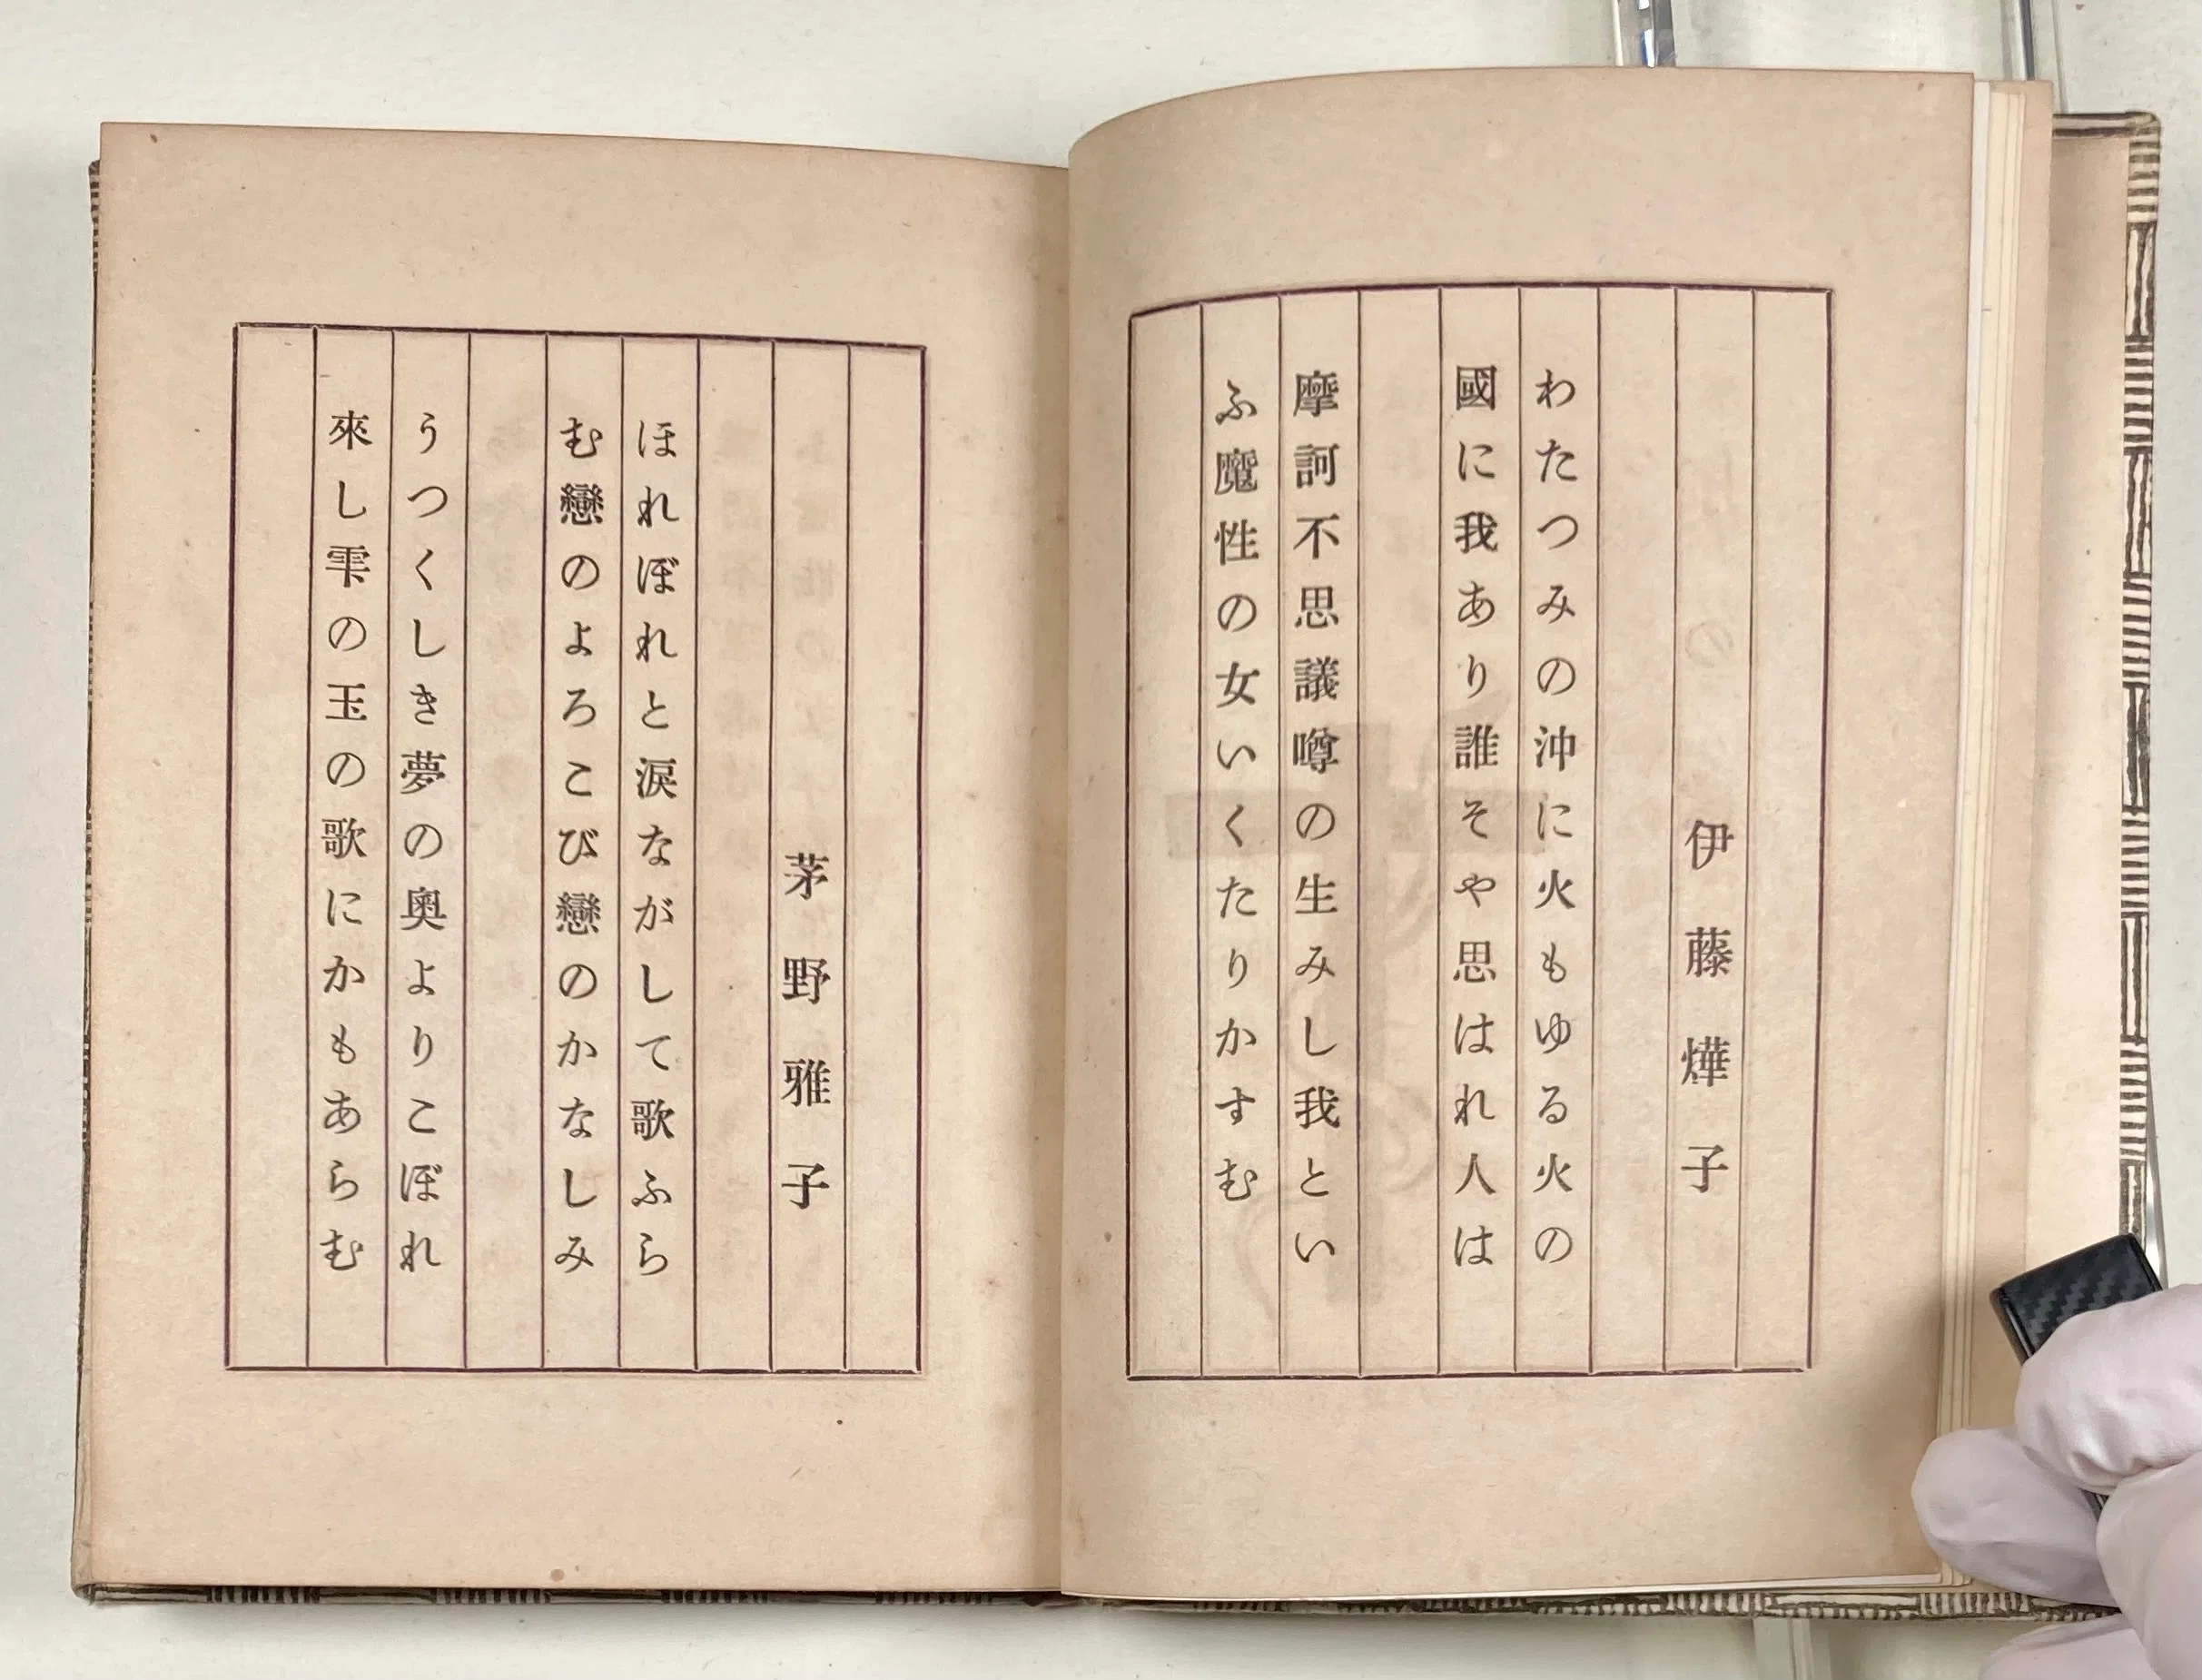 伊藤燁子
わたつみの沖に火もゆる火の
國に我あり誰そや思はれ人は
摩訶不思議噂の生みし我とい
ふ魔性の女いくたりかすむ
茅野雅子
ほれぼれと涙ながして歌ふら
む戀のよろこび戀のかなしみ
うつくしき夢の奥よりこぼれ
來し雫の玉の歌にかもあらむ